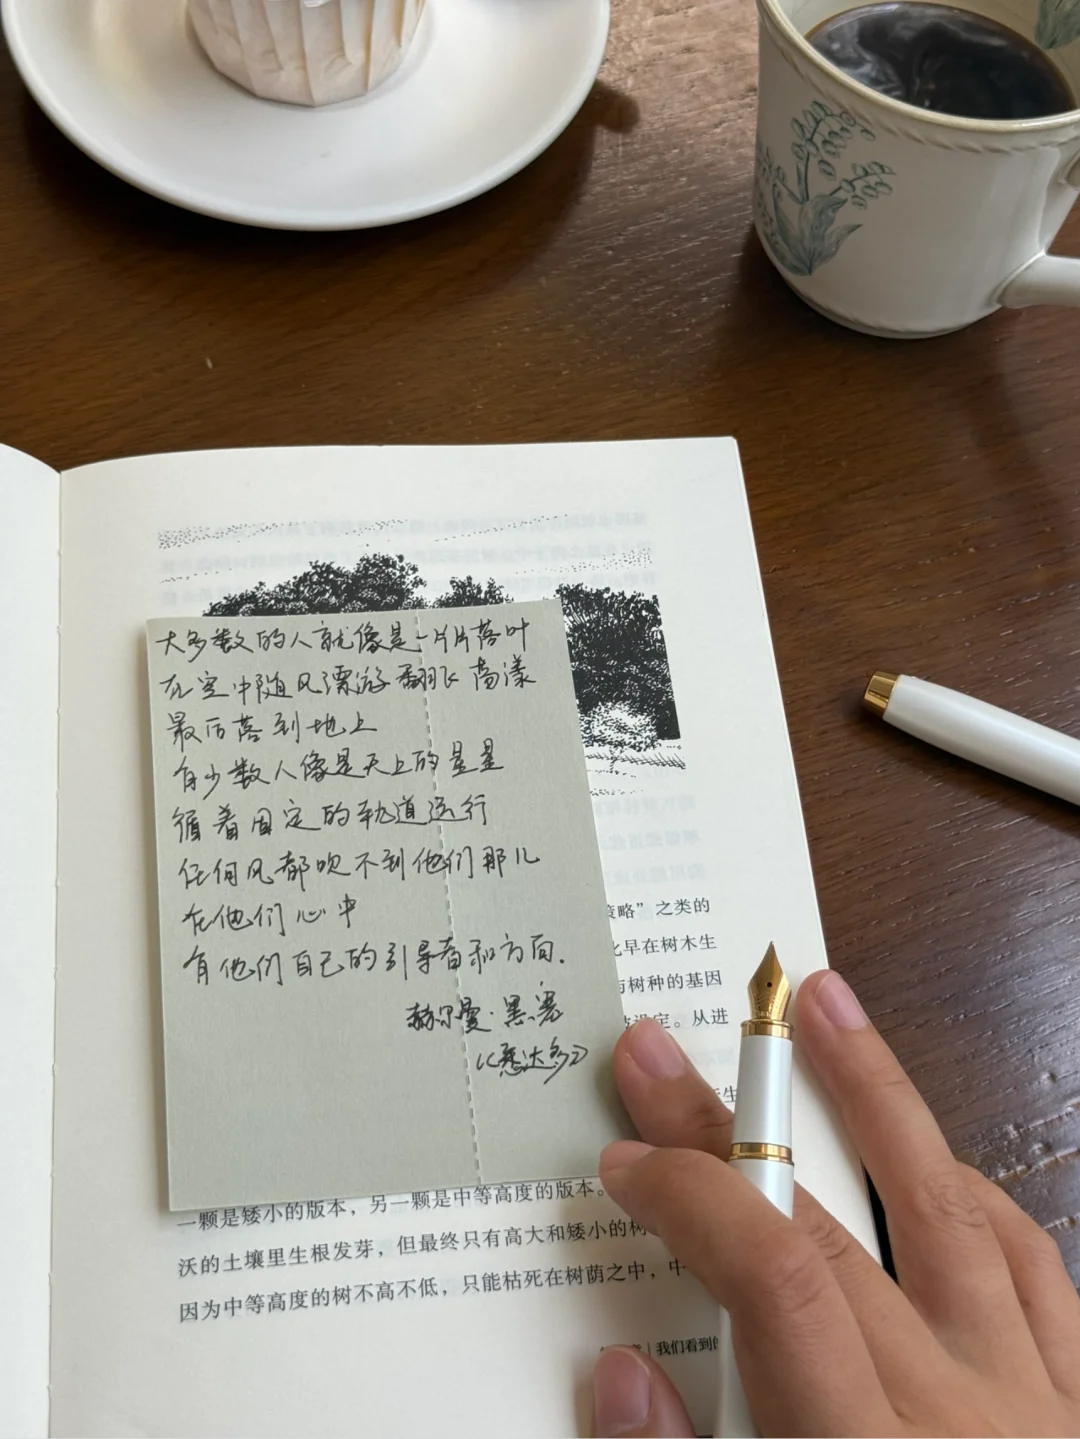 大多数的人就像是一片片落叶
在空中随风漂游翻飞荡漾
最后落到地上
有少数人像是天上的星星
循着固定的轨道运行
任何风都吹不到他们那儿
在他们心中
有他们自己的引导者和方向.
赫尔曼·黑塞
《悉达多》
策略”之类的
化早在树木生
与树种的基因
设定。从进
一颗是矮小的版本，另一颗是中等高度的版本。
沃的土壤里生根发芽，但最终只有高大和矮小的树
因为中等高度的树不高不低，只能枯死在树荫之中，中
章 | 我们看到的